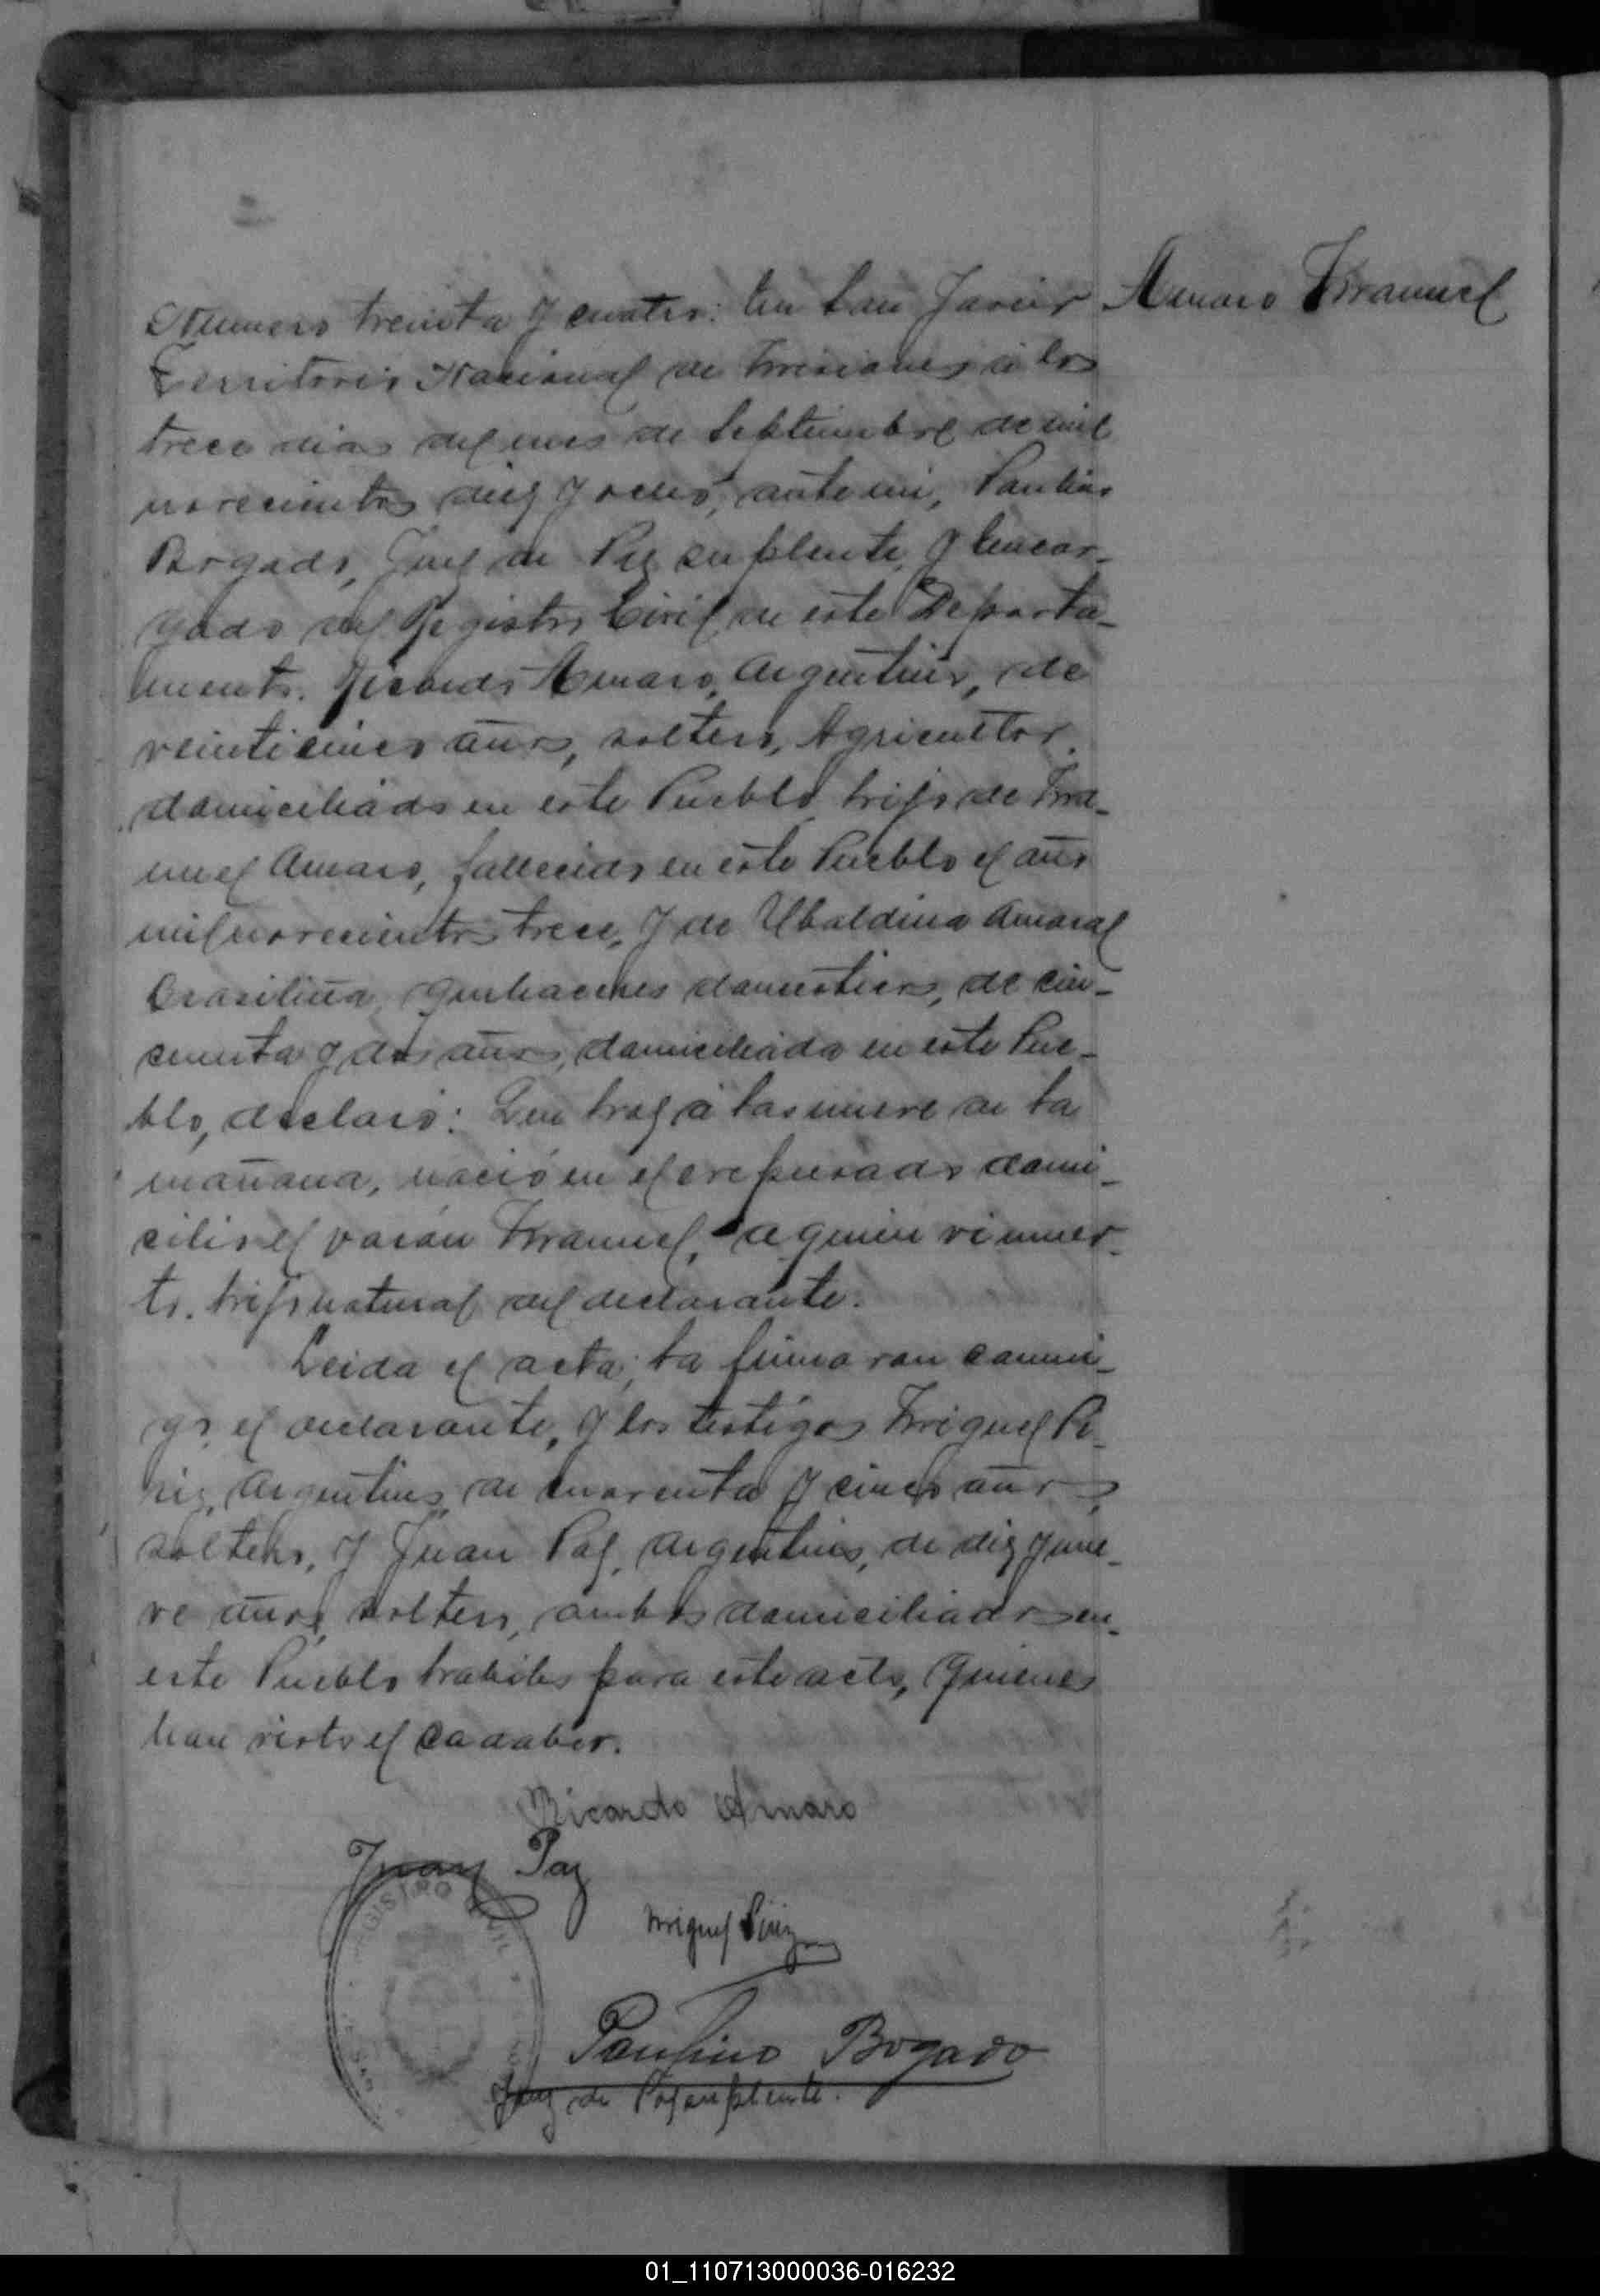 Amaro Manuel
Numero treinta y cuatro: En San Javier
Territorio Nacional de Misiones á los
trece dias del mes de Septiembre de mil
novecientos diez y ocho, ante mi, Paulino
Bogado, Juez de Paz suplente, y Encar-
gado del Registro Civil de este Departa-
mento. Ricardo Amaro, Argentino, de
veinticinco años, soltero, Agricultor
domiciliado en este Pueblo, hijo de Ma-
nuel Amaro, fallecido en este Pueblo el año
mil novecientos trece, y de Ubaldina Amaral
Brasilina, quehaceres domesticos, de cin-
cuenta y dos años, domiciliada en este Pue-
blo, declaró: Que hoy á las nueve de la
mañana, nació en el expresado domi-
cilio el varón Manuel, a quien vi muer-
to. hijo natural del declarante.
Leida el acta, la firmaron conmi-
go, el declarante, y los testigos Miguel Pi-
riz, Argentino, de cuarenta y cinco años,
soltero, y Juan Paz, Argentino, de diez y nue-
ve años, soltero, ambos domiciliados en
este Pueblo habiles para este acto, quienes
han visto el cadaber.
Ricardo Amaro
Juan Paz
Miguel Piriz
Paulino Bogado
Juez de Paz suplente.
REGISTRO CIVIL
01_110713000036-016232